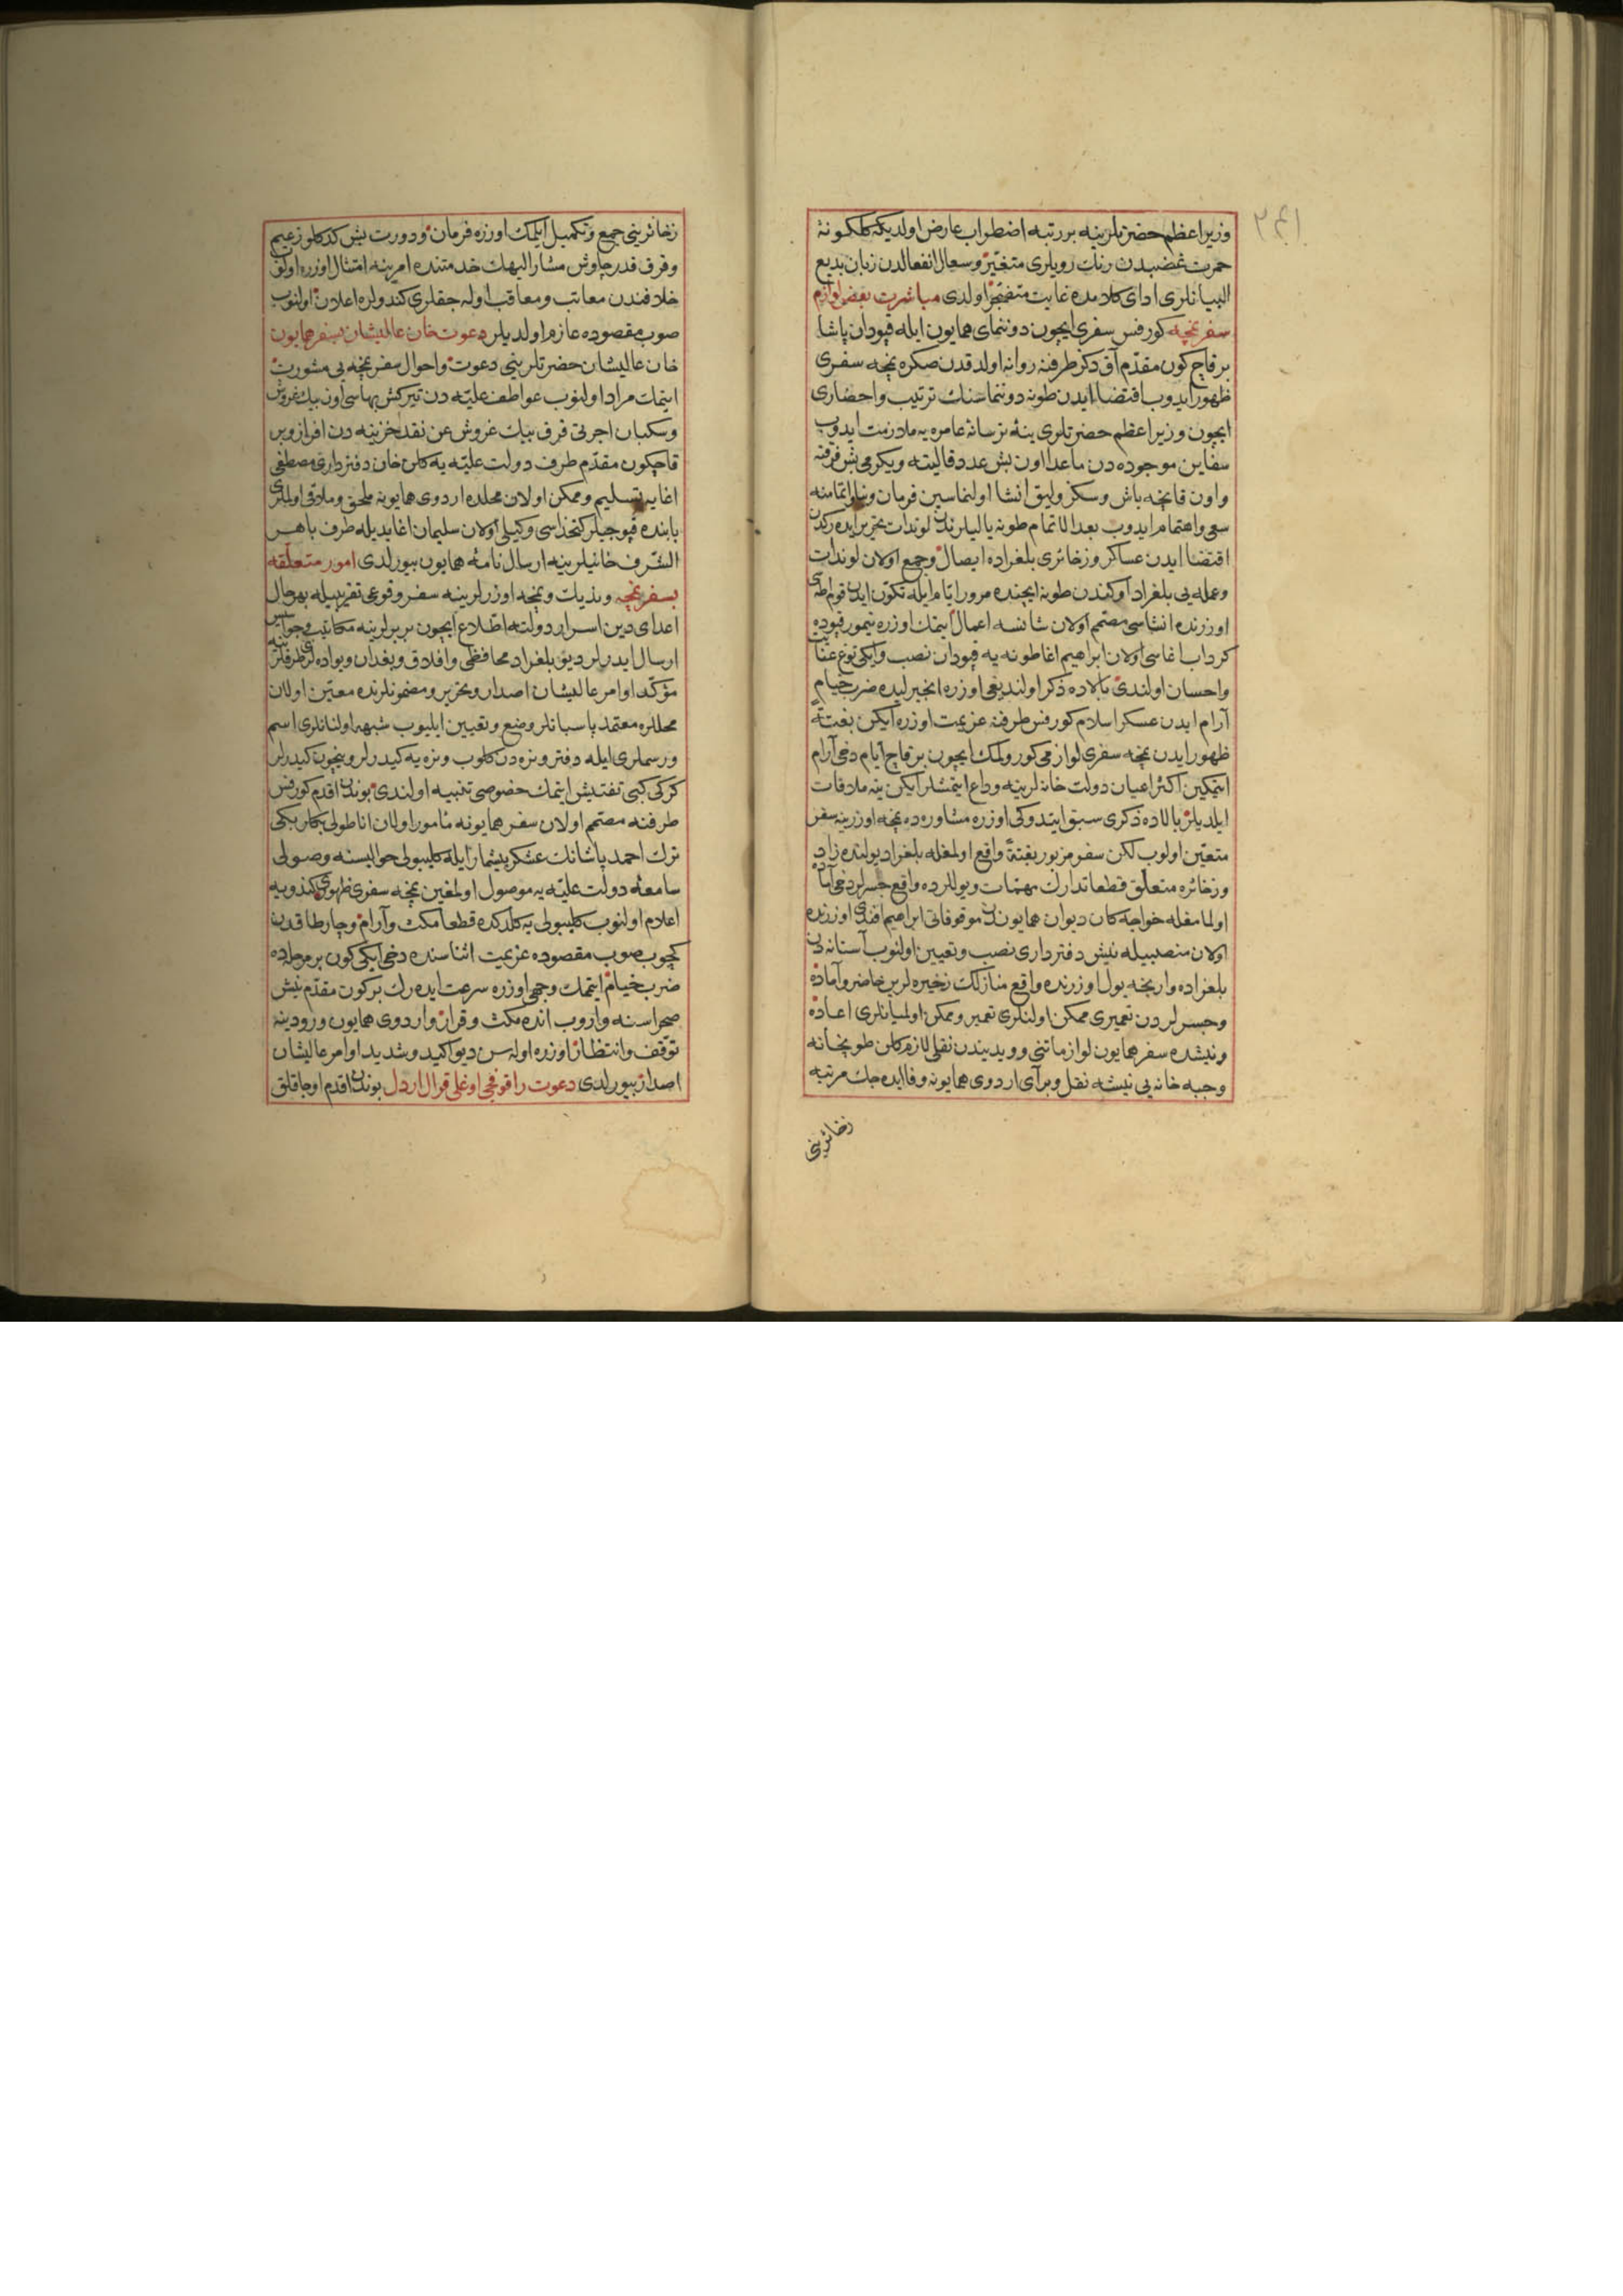 وزیر اعظم حضرتلرینه بر رتبه اضطراب عارض اولدیکه کلکونهٔ
حمرت غضبدن رنك رویلری متغیر وسعال انفعالدن زبان بدیع
البیانلری ادای کلامده غایت متفجر اولدی مباشرت بعض لوازم
سفر نمچه کورفس سفری ایچون دوننمای همایون ایله قپودان پاشا
بر قاچ کون مقدم آق دکز طرفنه روانه اولدقدن صکره نمچه سفری
ظهور ایدوب اقتضا ایدن طونه دوننماسنك ترتیب واحضاری
ایچون وزیر اعظم حضرتلری ینه ترسانهٔ عامره یه ملازمت ایدوب
سفاین موجوده دن ماعدا اون بش عدد قالیته ویکرمی بش فرقته
واون قانچه باش وسکز ولیق انشا اولنماسین فرمان واتمامنه
سعی واهتمام ایدوب بعد الاتمام طونه یالیلرندن لوندات تحریر ایده رك
اقتضا ایدن عساکر وزخائری بلغراده ایصال وجمع اولان لوندات
وعمله یی بلغراد اوکندن طونه ایچنده مرور ایام ایله تکون ایدن قوم اطه
اوزرنده انشاسی مصمم اولان شانسه اعمال ایتمك اوزره تیمور قپوده
کرداب اغاسی اولان ابراهیم اغا طونه یه قپودان نصب وایکی توغ عنایت
واحسان اولندی بالاده ذکر اولندیغی اوزره انجیرلیده ضرب خیام
آرام ایدن عسکر اسلام کورفس طرفنه عزیمت اوزره ایکن بغتة
ظهور ایدن نمچه سفری لوازمی کورولمك ایچون بر قاچ ایام دخی آرام
ایتمکین اکثر اعیان دولت خانه لرینه وداع ایتمشلر ایکن ینه ملاقات
ایلدیلر بالاده ذکری سبق ایتدوکی اوزره مشاوره ده نمچه اوزرینه سفر
متعین اولوب لکن سفر مزبور بغتة واقع اولمغله بلغراد یولنده زاد
وزخائره متعلق قطعا تدارك مهمات ویوللرده واقع جسرلر دخی آماده
اولمامغله خواجه کان دیوان همایوندن موقوفاتی ابراهیم افندی اوزرنده
اولان منصبیله نیش دفترداری نصب وتعیین اولنوب آستانه دن
بلغراده وارنجه یول اوزرنده واقع منازلك زخیره لرین حاضر وآماده
وجسرلردن تعمیری ممکن اولنلری تعمیر وممکن اولمیانلری اعاده
ونیشده سفر همایون لوازماتنی وویدیندن نقلی لازم کلن طوپخانه
وجبه خانه یی نیشه نقل وبرآی اردوی همایونه وفا ایده جك مرتبه
زخائرینی
زخائرینی جمع وتکمیل ایلمك اوزره فرمان ودورت بش کدکلو زعیم
وقرق قدر چاوش مشار الیهك خدمتنده امرینه امتثال اوزره اولوب
خلافندن معاتب ومعاقب اوله جقلری کندولره اعلان اولنوب
صوب مقصوده عازم اولدیلر دعوت خان عالیشان بسفر همایون
خان عالیشان حضرتلرینی دعوت واحوال سفر نمچه یی مشورت
ایتمك مراد اولنوب عواطف علیه دن تیرکش بهاسی اون بیك غروش
وسکبان اجرتی قرق بیك غروش عن نقد خزینه دن افراز وبر
قاچکون مقدم طرف دولت علیه یه کلن خان دفترداری مصطفی
اغایه تسلیم وممکن اولان محلده اردوی همایونه ملحق وملاقی اولملری
بابنده قپوجیلر کتخداسی وکیلی اولان سلیمان اغا یدیله طرف باهر
الشرف خانیلرینه ارسال نامهٔ همایون بیورلدی امور متعلقه
بسفر نمچه وندیك ونمچه اوزرلرینه سفر وقوعی تقریبیله بهرحال
اعدای دین اسرار دولته اطلاع ایچون بربرلرینه مکاتیب وجواسیس
ارسال ایدرلر دیو بلغراد محافظی وافلاق وبغدان ویواده لری طرفلرینه
مؤکد اوامر عالیشان اصدار وتحریر ومضمونلرنده معین اولان
محللره معتمد پاسبانلر وضع وتعیین ایلیوب شبهه اولنانلری اسم
ورسملری ایله دفتر ونره دن کلوب ونره یه کیدرلر ونیچون کیدرلر
کرکی کبی تفتیش ایتمك خصوصی تنبیه اولندی بوندن اقدم کورفس
طرفنه مصمم اولان سفر همایونه مأمور اولان اناطولی بکلربکی
ترك احمد پاشانك عسکر بیشمار ایله کلیبولی حوالیسنه وصولی
سامعهٔ دولت علیه یه موصول اولمغین نمچه سفری ظهوری کندویه
اعلام اولنوب کلیبولی یه کلدکده قطعا مکث وآرام وچارطاقدن
کچوب صوب مقصوده عزیمت اثناسنده دخی ایکی کون بر مرحله ده
ضرب خیام ایتمك وجهی اوزره سرعت ایده رك بر کون مقدم نیش
صحراسنه واروب انده مکث وقرار واردوی همایون ورودینه
توقف وانتظار اوزره اوله سن دیو اکید وشدید اوامر عالیشان
اصدار بیورلدی دعوت راقوفچی اوغلی قرال اردل بوندن اقدم اوجاقلق